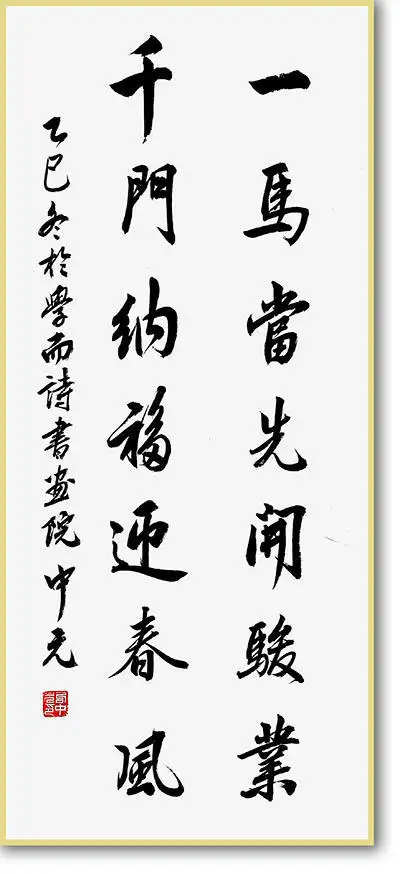 一馬當先開駿業
千門納福迎春風
乙巳冬於學而詩書畫院中元